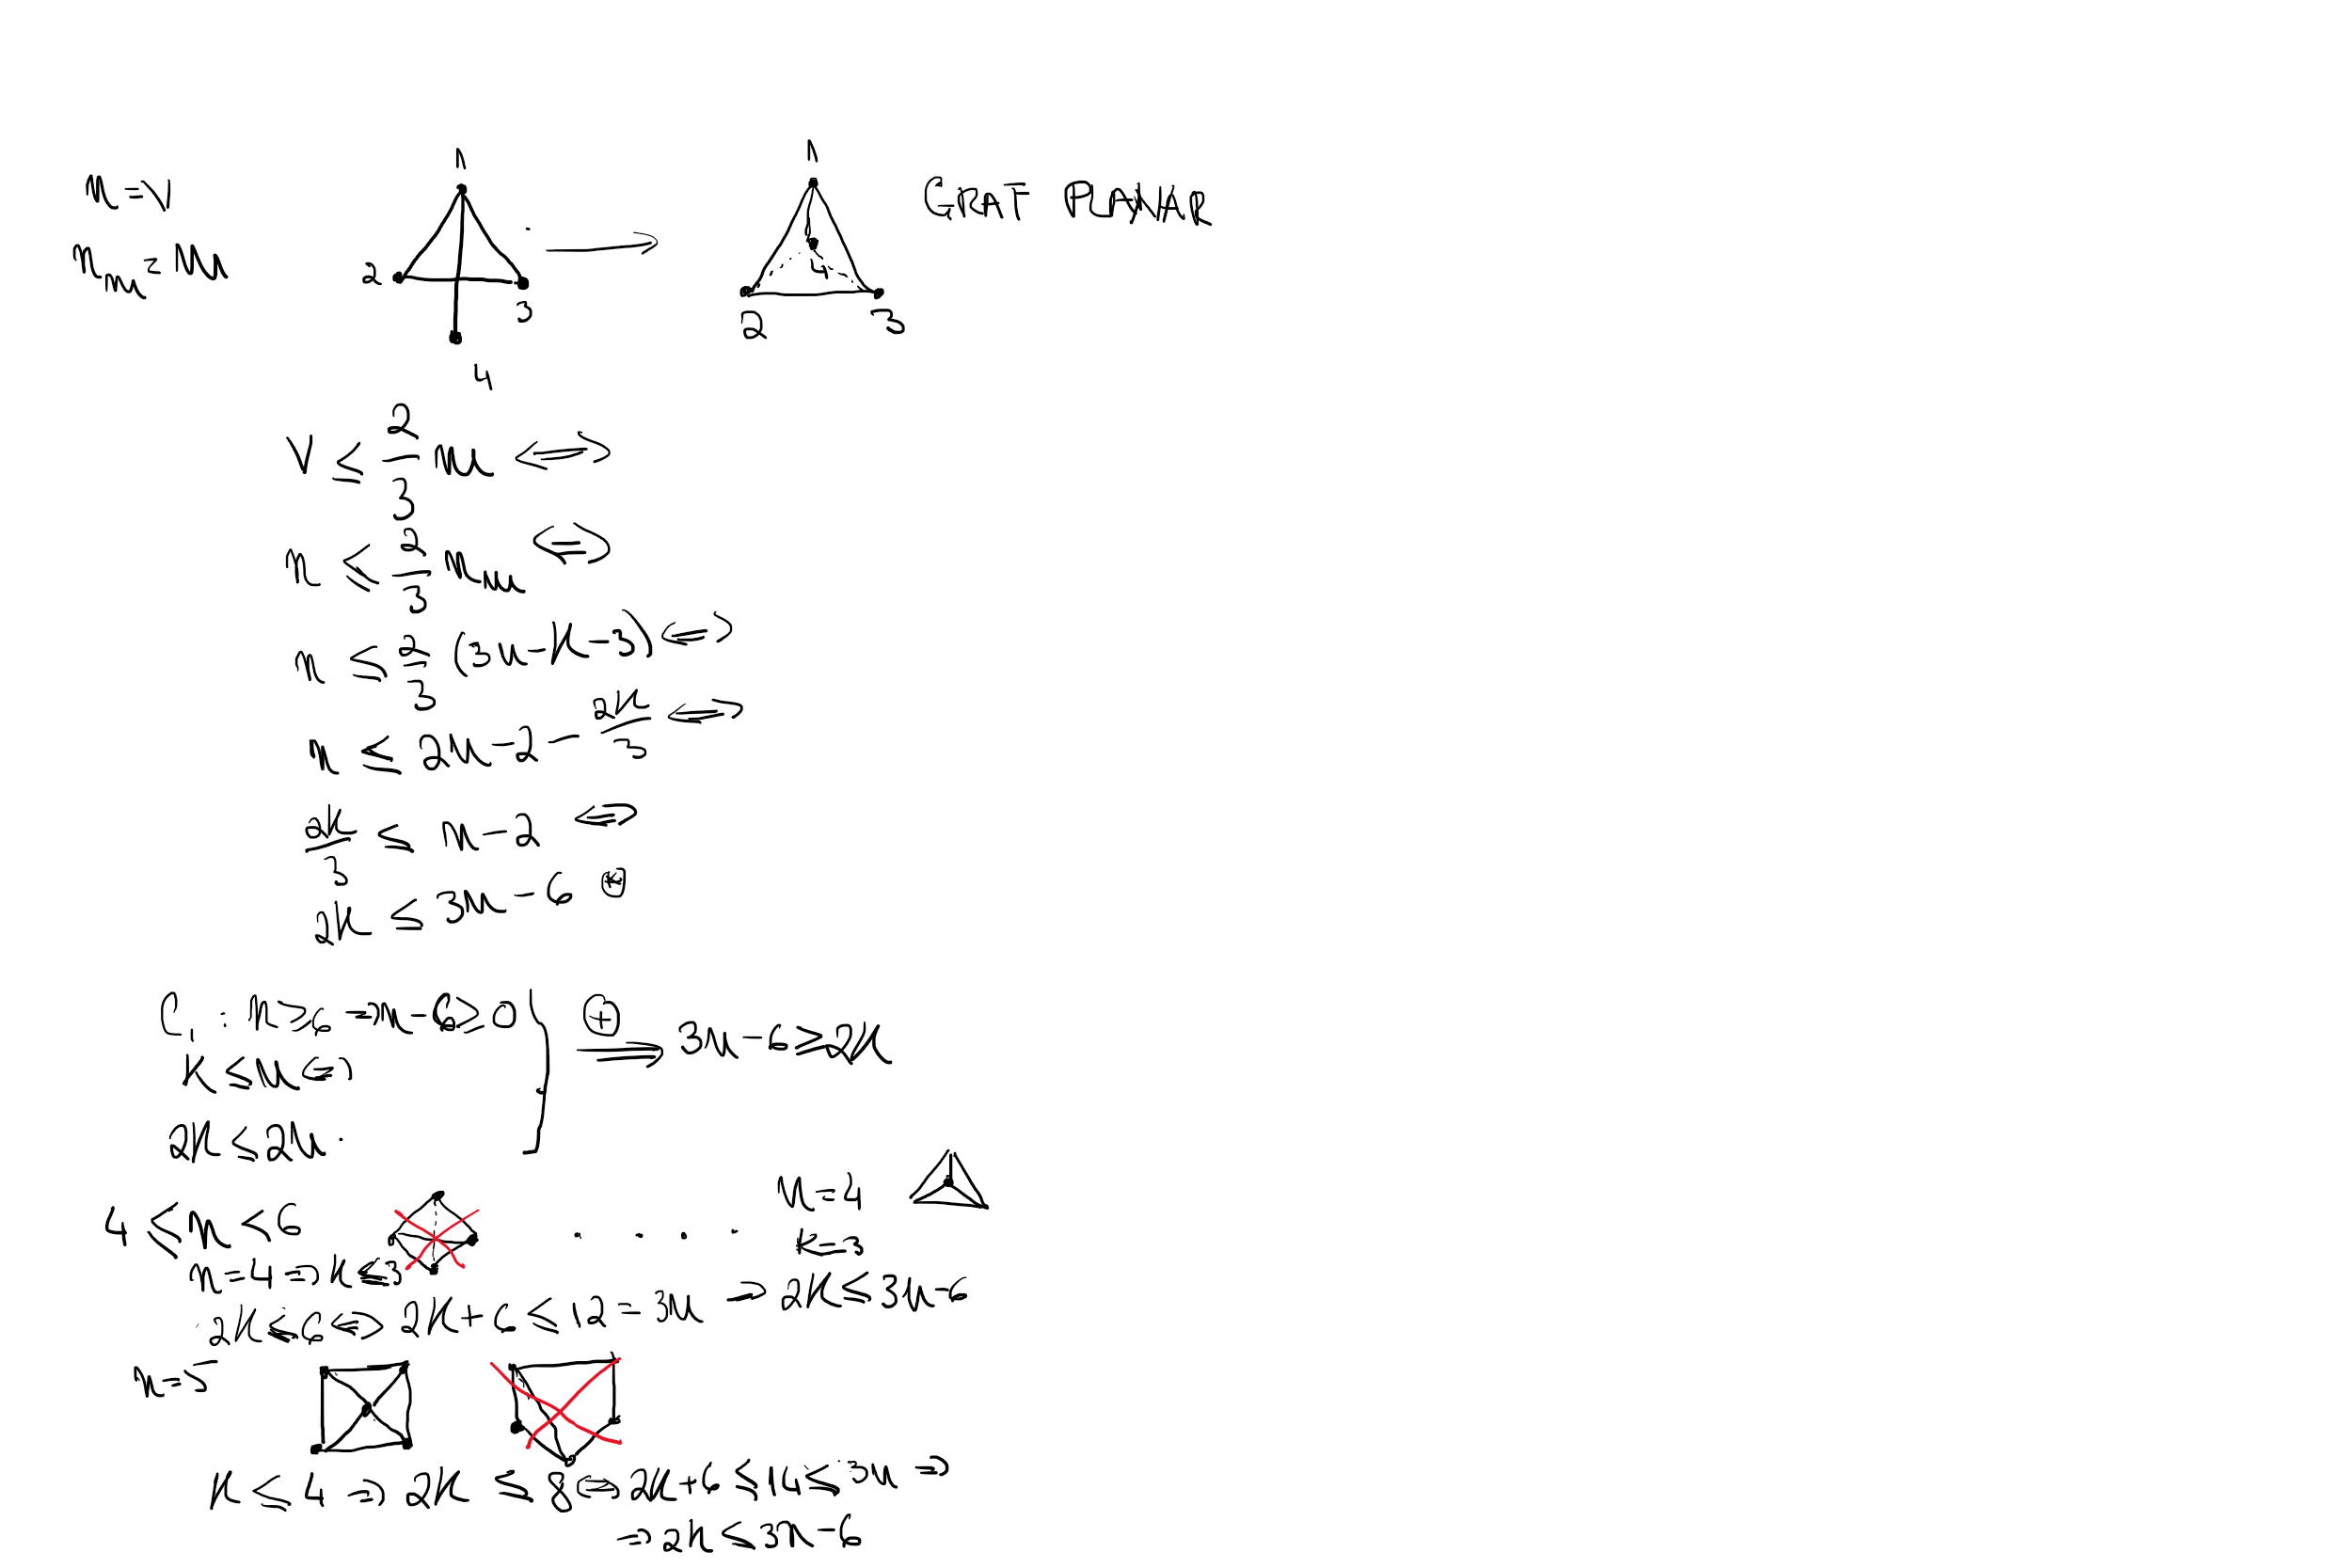 n = V
n_m = M
1
2
3
4
1
2
3
4
GRAF PLANAR
V ≤ 2/3 M ⟺
n ≤ 2/3 n_m ⟺
n ≤ 2/3 (3n - k - 3) ⟺
n ≤ 2n - 2 - 2k/3 ⟺
2k/3 ≤ n - 2 ⟺
2k ≤ 3n - 6 ⊛
C₁ : n ≥ 6 ⇒ n - 6 ≥ 0
k ≤ n ⟺
2k ≤ 2n .
⊕ ⟹ 3n - 6 ≥ 2k
4 ≤ n < 6
. . . .
n = 4
k = 3
n = 4 ⇒ k ≤ 3
2k ≤ 6 ⟺ 2k + 6 ≤ 12 = 3n ⇒ 2k ≤ 3n - 6
n = 5
k ≤ 4 ⇒ 2k ≤ 8 ⟺ 2k + 6 ≤ 14 ≤ 3n ⇒
⇒ 2k ≤ 3n - 6